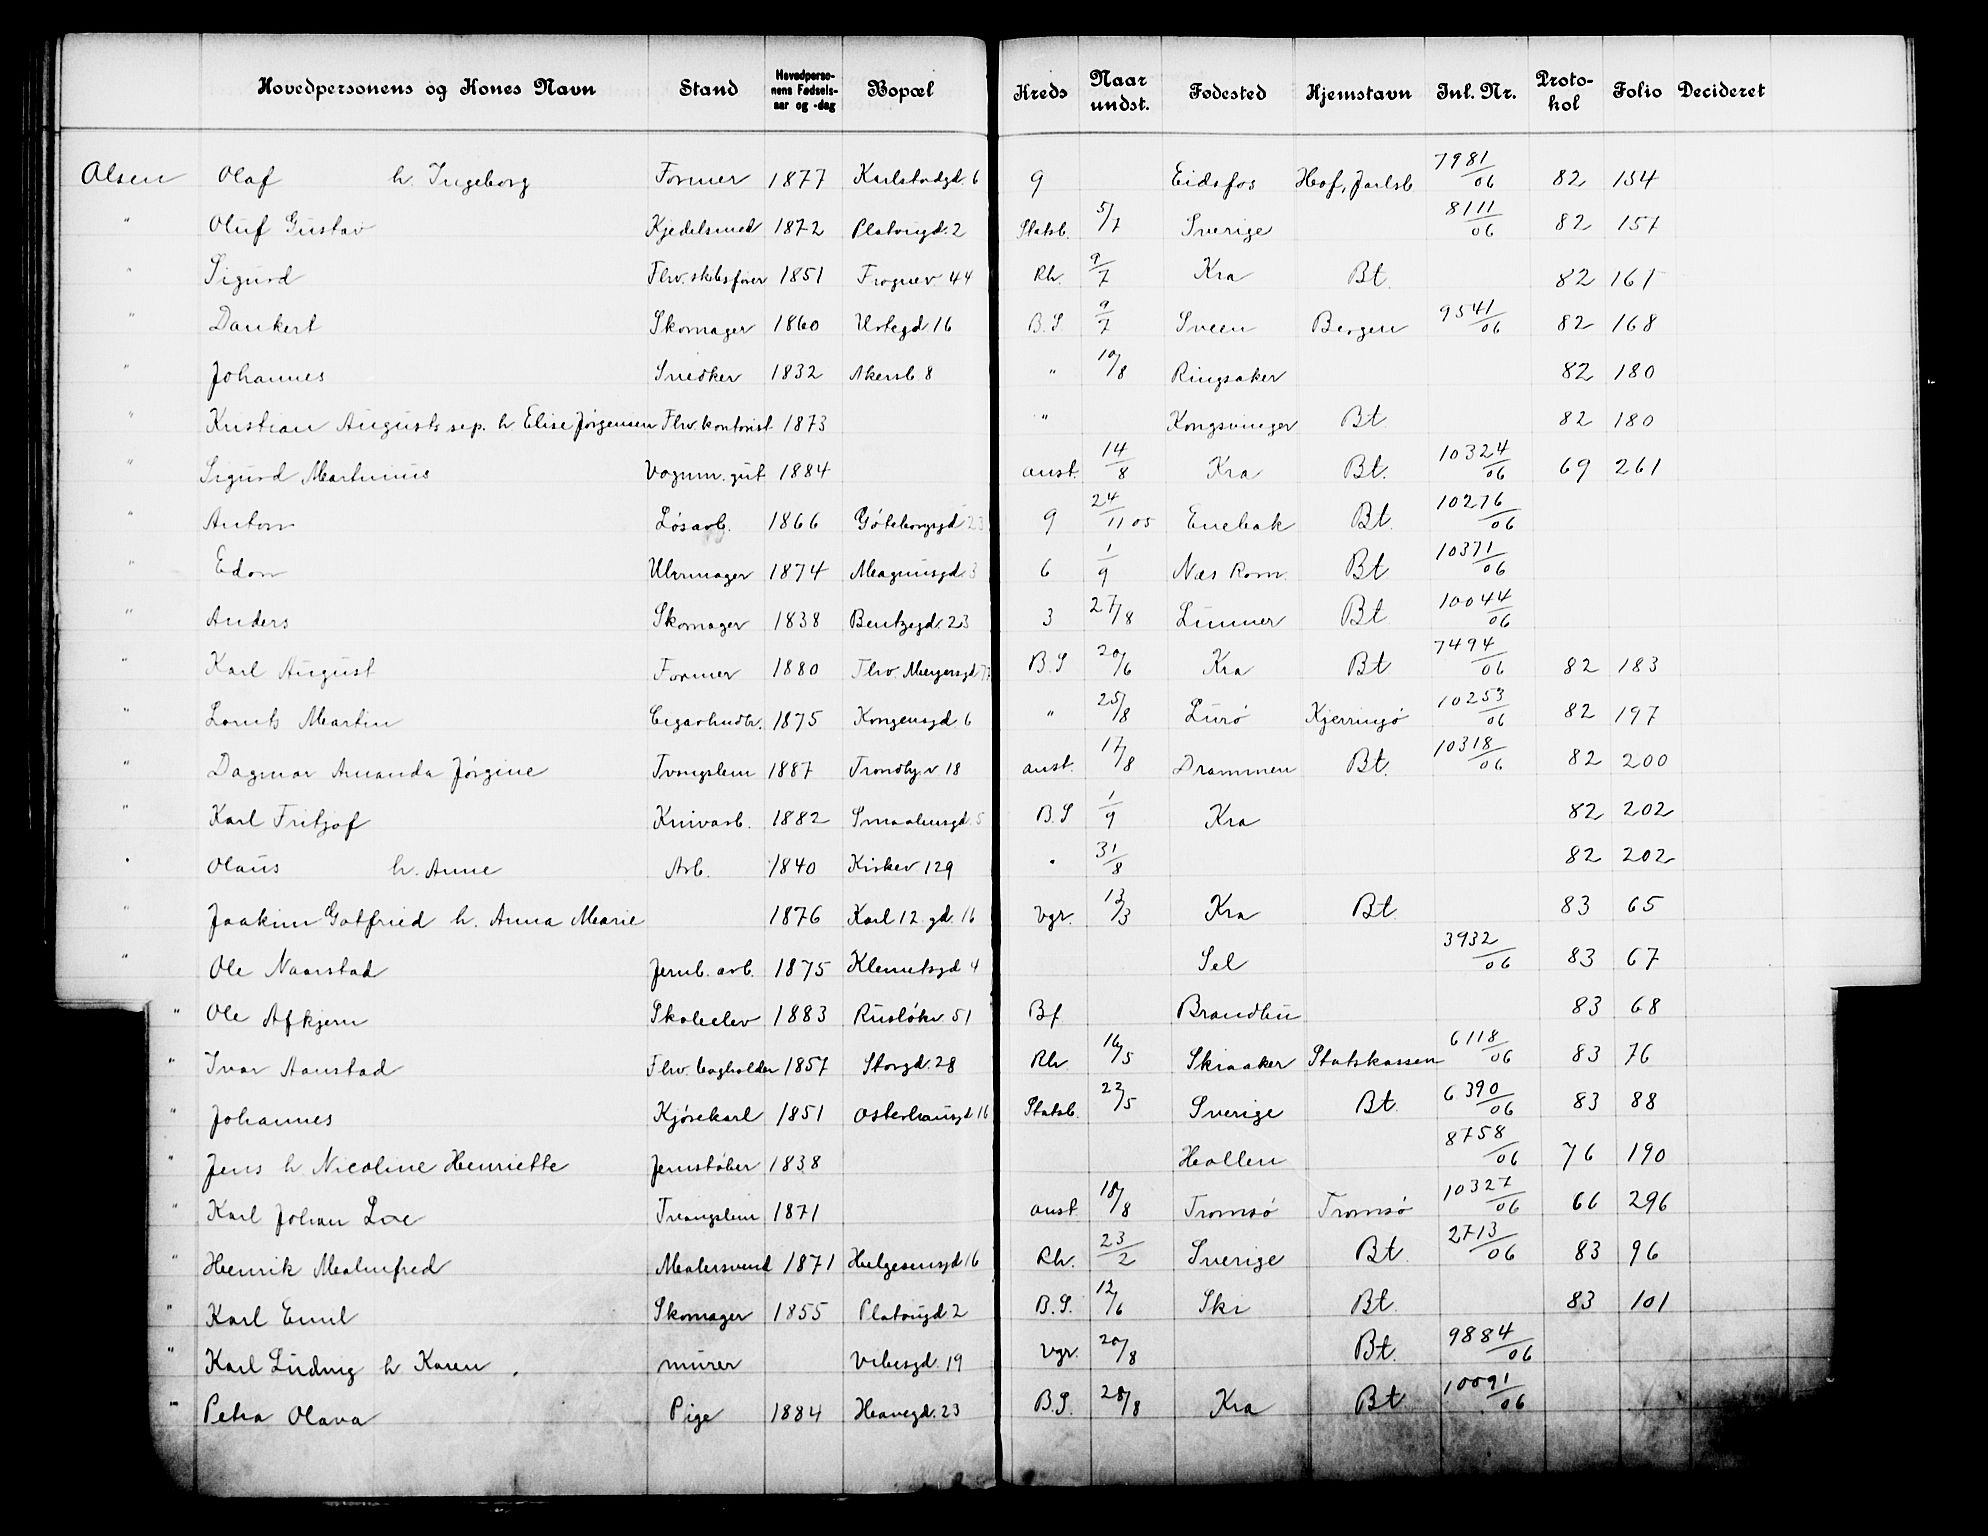 Hovedpersonens og Kones Navn Stand Hovedperso-nens Fødsels-aar og -dag Bopæl Kreds Naar undst. Fødested Hjemstavn Inl. Nr. Proto-kol Folio Decideret
Olsen Olaf h. Ingeborg Former 1877 Karlstadgd. 6 9 Eidsfos Hof, Jarlsb 7981/06 82 154
" Oluf Gustav Kjedelsmed 1872 Platougd. 2 Statsb. 5/7 Sverige 8111/06 82 157
" Sigurd Fhv. skibsfører 1851 Frognerv 44 Rh. 9/7 Kra Bt. 82 161
" Dankert Skomager 1860 Urtegd 16 B.S 9/7 Sveen Bergen 9541/06 82 168
" Johannes Snedker 1832 Akersb. 8 " 10/8 Ringsaker 82 180
" Kristian August sep. h Elise Jørgensen Fhv. kontorist 1873 " Kongsvinger Bt 82 180
" Sigurd Martinius Vognm. gut 1884 anst. 14/8 Kra Bt. 10324/06 69 261
" Anton Løsarb. 1866 Göteborggd 23 9 24/11 05 Enebak Bt. 10276/06
" Edon Uhrmager 1874 Magnusgd. 3 6 1/9 Næs Rom. Bt 10371/06
" Anders Skomager 1838 Bentzegd. 23 3 27/8 Lunner Bt 10044/06
" Karl August Former 1880 Thv. Meyersgd 77 B.S 20/6 Kra Bt 7494/06 82 183
" Lorents Martin Cigarhndlr. 1875 Kongensgd. 6 " 25/8 Lurö Kjerringö 10253/06 82 197
" Dagmar Amanda Jørgine Tvangslem 1887 Trondhj.v 18 anst. 17/8 Drammen Bt. 10318/06 82 200
" Karl Fritjof Knivarb. 1882 Smaalensgd. 5 B.S 1/9 Kra 82 202
" Olaus h. Anne Arb. 1840 Kirkev 129 " 31/8 82 202
" Joakim Gotfried h. Anna Marie 1876 Karl 12 gd. 16 Vgr. 13/3 Kra Bt. 83 65
" Ole Naarstad Jernb. arb. 1875 Klemetsgd 4 Sel 3932/06 83 67
" Ole Afkjern Skoleelev 1883 Rusløkv 51 Bf Brandbu 83 68
" Ivar Aanstad Fhv. bogholder 1857 Storgd. 28 Rh 16/5 Skiaaker Statskassen 6118/06 83 76
" Johannes Kjørekarl 1851 Osterhausgd. 16 Statsb. 22/5 Sverige Bt. 6390/06 83 88
" Jens h Nicoline Henriette Jernstøber 1838 Hollen 8758/06 76 190
" Karl Johan Loe Tvangslem 1871 anst. 18/8 Tromsö Tromsö 10327/06 66 296
" Henrik Malmfred Malersvend 1871 Helgesensgd 16 Rh. 23/2 Sverige Bt 2713/06 83 96
" Karl Emil Skomager 1855 Platougd 2 B.S. 12/6 Ski Bt 83 101
" Karl Ludvig h Karen . murer Vibesgd. 19 Vgr. 20/8 Bt. 9884/06
" Petra Olava Pige 1884 Havegd. 23 B.S. 28/8 Kra Bt 10091/06